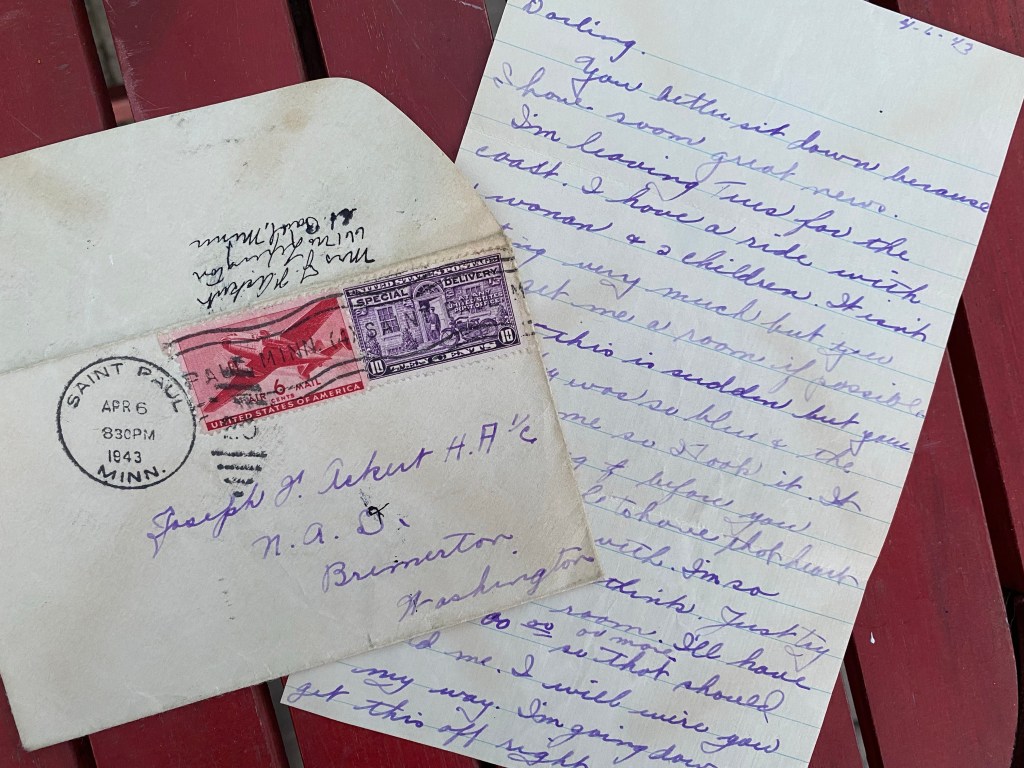 Mrs J. F. Askert
661 No Lexington
St. Paul, Minn
SAINT PAUL
APR 6
830 PM
1943
MINN.
PAUL MINN.
AIR MAIL
6 CENTS
UNITED STATES OF AMERICA
UNITED STATES POSTAGE
SPECIAL DELIVERY
10 TEN CENTS 10
Joseph F. Askert H.A 1/c
N.A.D.
Bremerton
Washington
4-6-43
Darling.
You better sit down because
I have soom great news.
I'm leaving Tues for the
coast. I have a ride with
woman & 2 children. It isn't
very much but you
get me a room if possible
this is sudden but you
was so blue & the
me so I took it. It
before you
to have that heart
with. I'm so
think. Just try
room. I'll have
00 00 00 more
so that should
me. I will wire you
my way. I'm going down
get this off right